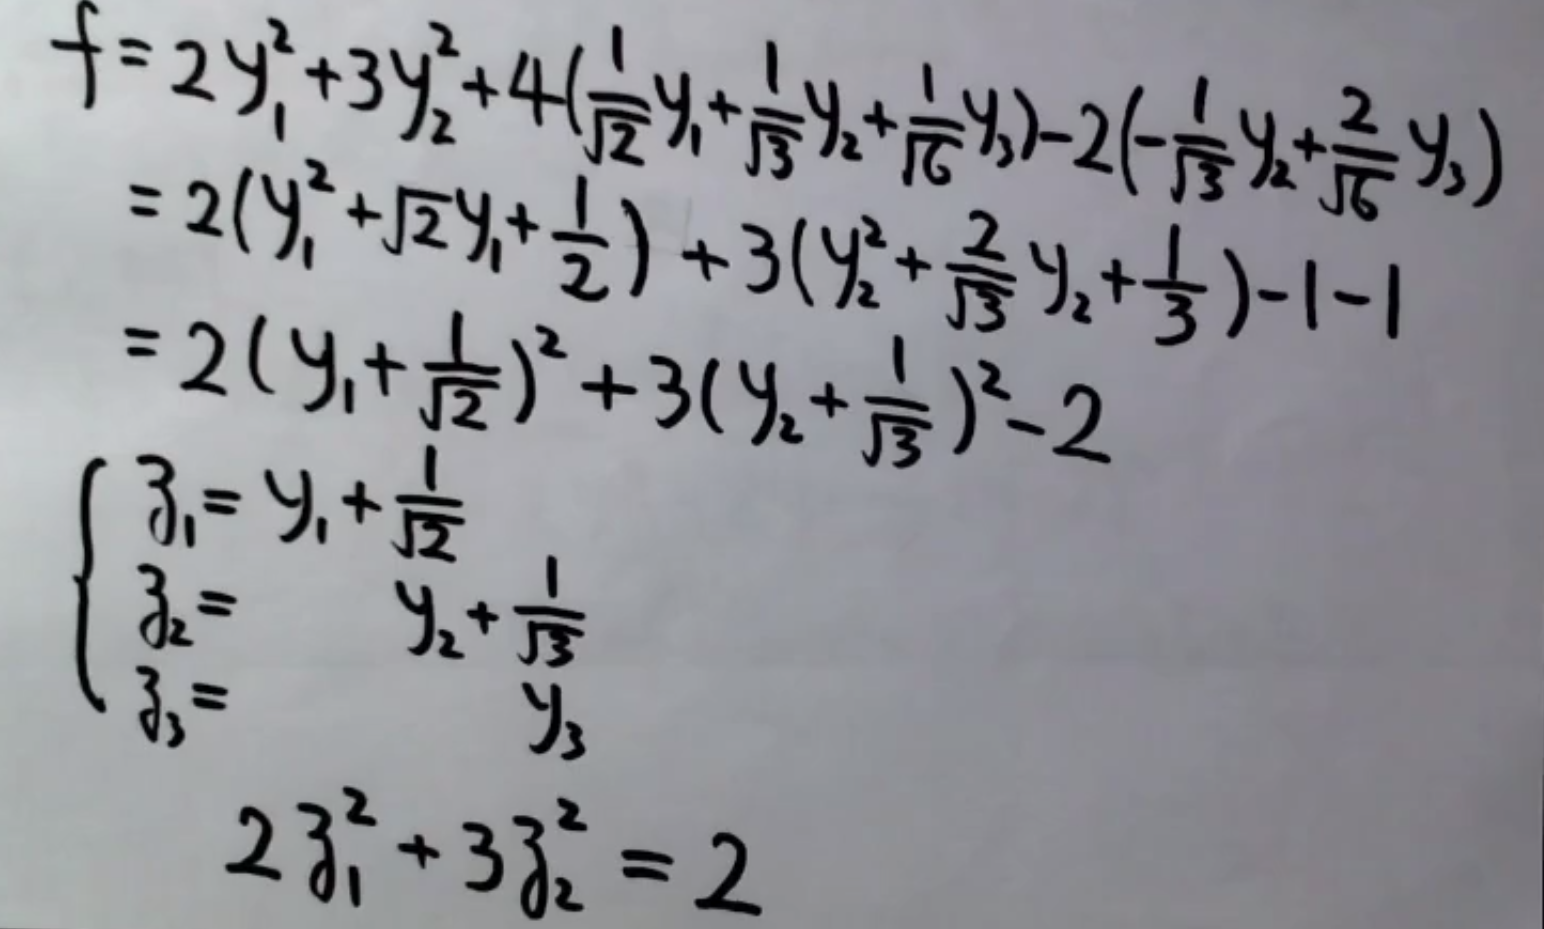 f = 2y₁² + 3y₂² + 4(1/√2 y₁ + 1/√3 y₂ + 1/√6 y₃) − 2(−1/√3 y₂ + 2/√6 y₃)
= 2(y₁² + √2 y₁ + 1/2) + 3(y₂² + 2/√3 y₂ + 1/3) − 1 − 1
= 2(y₁ + 1/√2)² + 3(y₂ + 1/√3)² − 2
{ z₁ = y₁ + 1/√2
z₂ = y₂ + 1/√3
z₃ = y₃
2z₁² + 3z₂² = 2